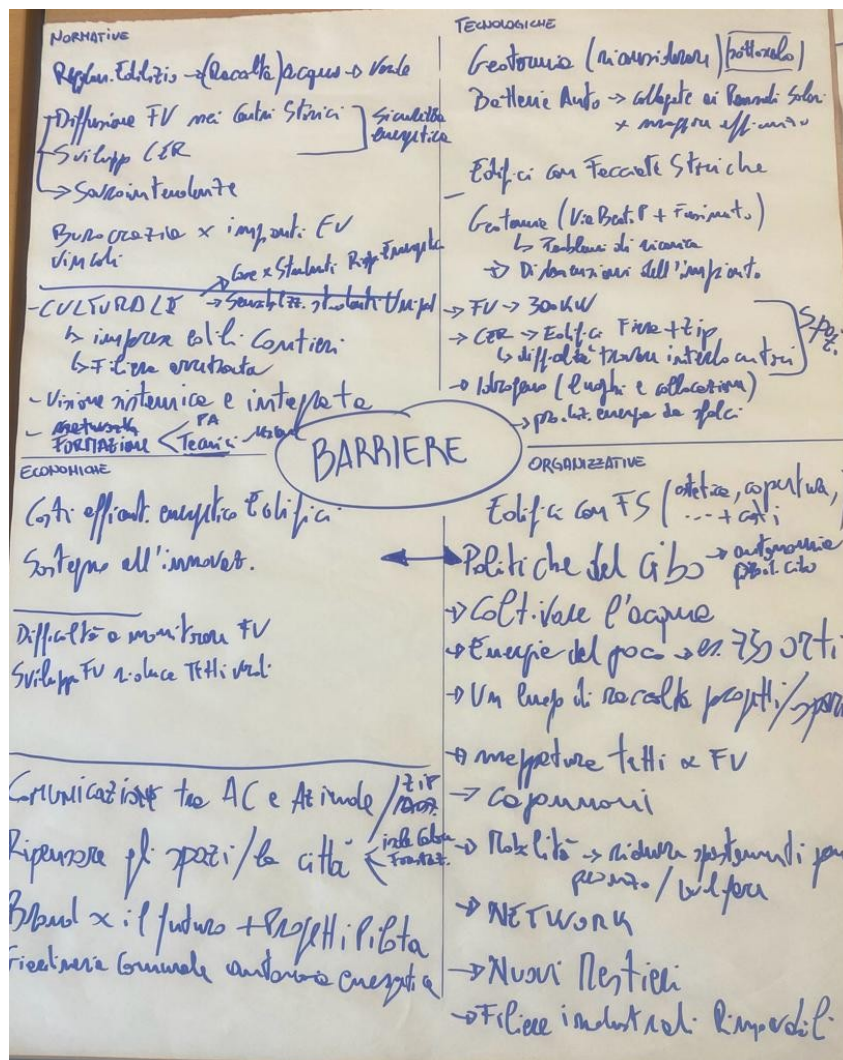 NORMATIVE
Regolam. Edilizio → (Raccolta) acqua → Verde
→ Diffusione FV nei Centri Storici
→ Svilupp CER
energetica
→ Sovraintendenze
Burocrazia x impianti FV
Vincoli
- CULTURALE
→ Gare x Studenti Risp. Energetico
→ Sensibilizz. studenti
↳ imprese edili. Cantieri
↳ Filiera arretrata
- Visione sistemica e integrata
- NETWORK
FORMAZIONE < PA
Tecnici
TECNOLOGICHE
Geotermia (sottosuolo)
Batterie Auto → collegate ai Pannelli Solari
x maggiore efficienza
Edifici con Facciate Storiche
Geotermia
↳ Problemi di
→ Dimensioni dell'impianto
→ FV → 300 KW
→ CER → Edifici Fiera + Zip
↳ difficoltà trovare interlocutori
→ Idrogeno (luoghi e collocazione)
→ energia da sfalci
BARRIERE
ECONOMICHE
Costi efficient. energetico Edifici
Sostegno all'innovaz.
Difficoltà a monitorare FV
Sviluppo FV riduce Tetti verdi
Comunicazione tra AC e Aziende / ZIP
Ripensare gli spazi / la città
Brand x il futuro + Progetti Pilota
Comunale autonomia energetica
ORGANIZZATIVE
Edifici con FS (estetica, copertura,
... + costi
Politiche del Cibo → autonomia
prod. cibo
→ Coltivare l'acqua
→ Energie del poco → es. 750 orti
→ Un luogo di raccolta progetti /
→ mappatura tetti x FV
→ capannoni
→ Mobilità → ridurre spostamenti
/ welfare
→ NETWORK
→ Nuovi Mestieri
→ Filiere industriali Rinnovabili